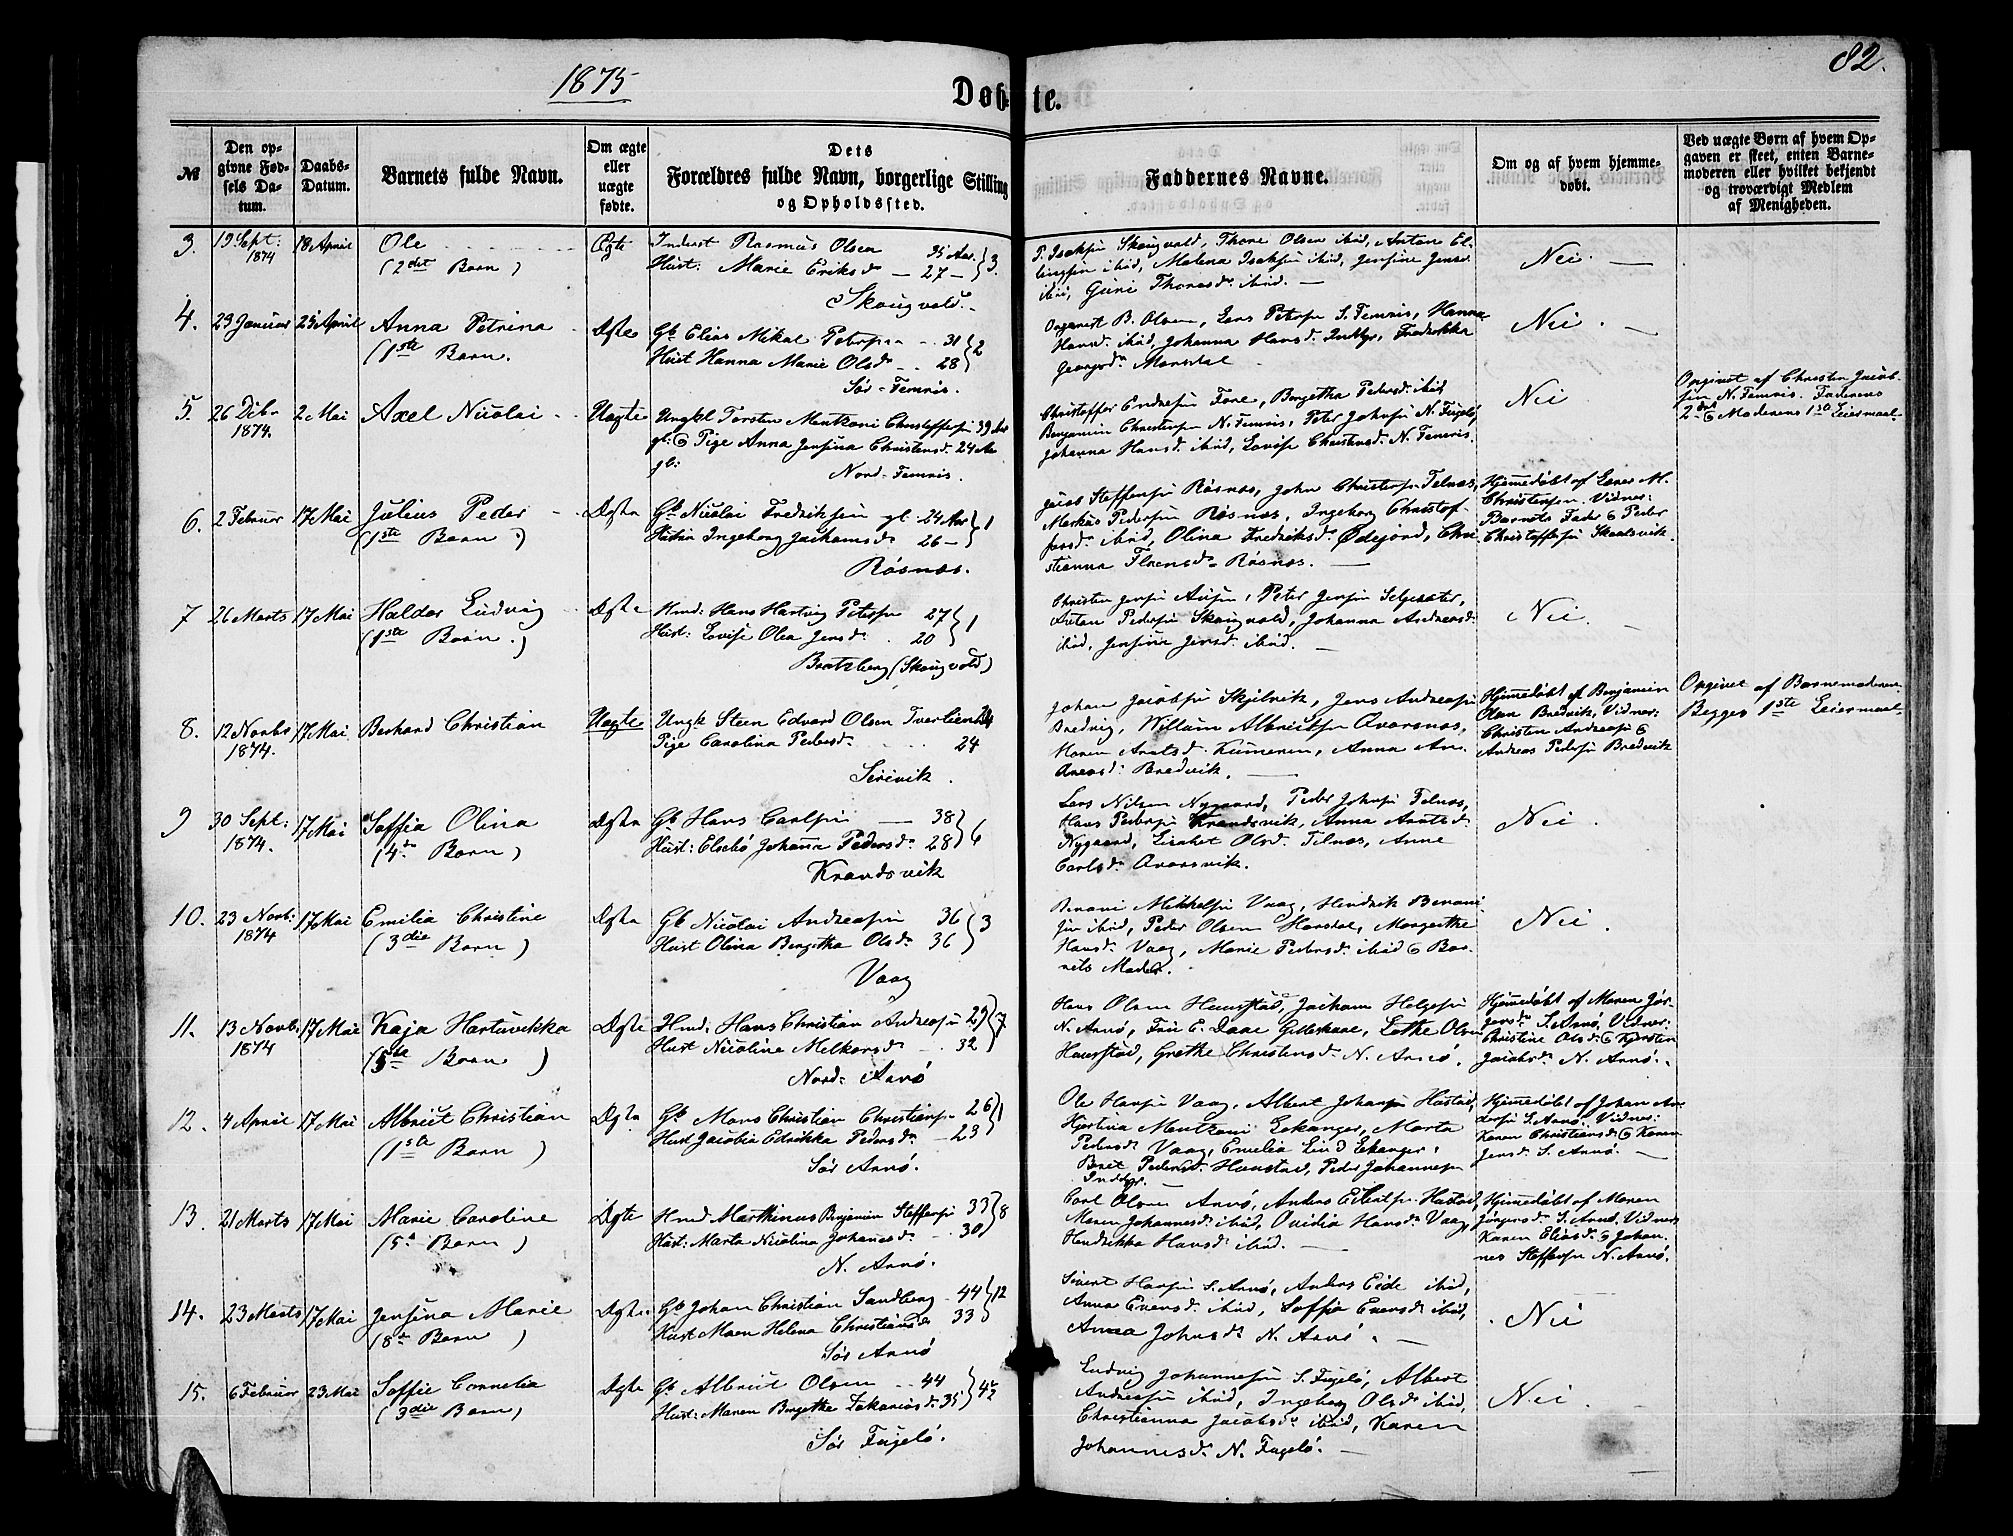 1875
82.
Døbte.
№
Den opgivne Fødsels Datum.
Daabs-Datum.
Barnets fulde Navn.
Om ægte eller uægte fødte.
Dets Forældres fulde Navn, borgerlige Stilling og Opholdssted.
Faddernes Navne.
Om og af hvem hjemmedøbt.
Ved uægte Børn af hvem Opgaven er skeet, enten Barnemoderen eller hvilket bekjendt og troværdigt Medlem af Menigheden.
3. 19 Sept: 1874 18 April Ole
(2det Barn)
Ægte
Inderst Rasmus Olsen 35 Aar
Hust: Marie Eriksd. — 27 — } 3.
Skougvold.
P. Isaksen Skougvold, Thore Olsen ibid, Anton El-
lingsen ibid, Malena Isaksen ibid, Jensine Jensd.
ibid, Guri Thoresd. ibid. —
Nei. —
4. 29 Januar 25 April Anna Petrina
(1ste Barn.
Ægte
Gb. Elias Mikal Petersen — 31
Hust Hanna Marie Olsd — 28 } 2
Sør-Femris.
Organist B. Olsen, Lars Petersen S. Femris, Hanna
Hansd. ibid, Johanna Hansd. Inddyr, Fredrikka
Georgsd. Mørsdal
Nei. —
5. 26 Dcb. 1874. 2 Mai Axel Nicolai
Uægte
Ungkl Torsten Mentzoni Christoffersen 39 Aar
gl: & Pige Anna Jensina Christensd. 24 Aar
gl:
Nord-Femris.
Christoffer Endresen Fore, Bergetha Pedersd. ibid
Benjamin Christensen N. Femris, Peter Johnsen N. Fugelø,
Johanna Hansd. ibid, Lovise Christensd. N. Femris.
Nei
Opgivet af Christen Jacob-
sen N. Femris. Faderens
2det & Moderens 1ste Leiermaal.
6. 2 Februar 17 Mai Julius Peder
(1ste Barn)
Ægte
Gb. Nicolai Fredriksen gl. 24 Aar
Hustru Ingeborg Jachamsd. 26 — } 1
Røsnæs.
Steffensen Røsnæs, John Christensen Telnæs,
Markus Pedersen Røsnæs, Ingeborg Christof-
fersd. ibid, Olina Fredriksd. Ødejord, Chri-
stianna Røsnæs. —
Hjemmedøbt af Lærer M.
Christensen. Vidner:
Barnets Fader & Peder
Christoffersen Skaalsvik.
7 26 Marts 17 Mai Haldor Ludvig
(1ste Barn.)
Ægte
Hmd: Hans Hartvig Petersen 27
Hust: Lovise Olea Jensd. 20 } 1
Bratzberg (Skougvold)
Christen Jensen Peter Jensen Selsæter,
Anton Pedersen Skougvold, Johanna Andreasd.
ibid, Jensine Jensd. ibid. —
Nei. —
8. 12 Novb 1874. 17 Mai Berhard Christian
Uægte
Ungk Steen Edvard Olsen Tverlien 24
Pige Carolina Pedersd. 24
Seivik.
Johan Jacobsen Skjelvik, Jens Andreasen
Bredvig, Willum Albrigtsen Kvarsnæs,
Maren Arntsd. Kumeren, Anna An-
dreasd: Bredvik. —
Hjemmedøbt af Benjamin
Olsen Bredvik, Vidner:
Christen Andreasen &
Andreas Pedersen Bredvik
Opgivet af Barnemoderen.
Begges 1ste Leiermaal.
9 30 Sept: 1874. 17 Mai Soffia Olina
(4de Barn)
Ægte
Gb Hans Carlsen — 38
Hust: Elsebø Johanna Pedersd. 28 } 6
Krandsvik
Lars Nilsen Nygaard, Peder Johnsen Telnæs,
Hans Pedersen Krandsvik, Anna Arntsd.
Nygaard, Lisabet Olsd. Telnæs, Anne
Carlsd. Kvarsvik.
Nei.
10. 23 Novb: 1874 17 Mai Emilia Christine
(3die Barn)
Ægte
Gb Nicolai Andreasen 36
Hust Olina Bergitha Olsd. 36 } 3
Vaag
Benoni Mikkelsen Vaag, Hendrik Benoni-
sen ibid, Peder Olsen Horsdal, Margrethe
Hansd. Vaag, Marie Pedersd. ibid & Bar-
nets Moder.
Nei.
11. 13 Novb. 1874 17 Mai Kaja Hartvikka
(5te Barn)
Ægte
Hmd: Hans Christian Andreasen 29
Hust Nicoline Melkersd. 32 } 7
Nord: Arnø
Hans Olsen Haustad, Jacham Helgesen
N. Arnø, Fru C. Daae Gilleskaal, Lothe Olsen
Haustad, Grethe Christensd. N. Arnø.
Hjemmedøbt af Maren Jør-
gensd. S. Arnø, Vidner:
Christine Olsd. & Kjersten
Jacobsd. N. Arnø.
12. 4 April 17 Mai Albrigt Christian
(1ste Barn)
Ægte
Gb. Mons Christian Christiansen 26
Hust Jacobia Edrikka Pedersd. — 23 } 1
Sør Arnø.
Ole Hansen Vaag, Albert Johansen Hustad,
Hjertina Mentzoni Eekanger, Marta
Pedersd. Vaag, Emelia Lind Ekanger,
Beret Pedersd. Haustad, Peder Johannesen
Inddyr. —
Hjemmedøbt af Johan An-
dersen S. Arnø. Vidner:
Karen Christiansd. & Karen
Jensd. S. Arnø. —
13. 21 Marts 17 Mai Marie Caroline
(5te Barn)
Ægte
Hmd Marthinus Benjamin Steffensen 33
Hust: Marta Nicolina Johansd. — 30 } 8
N. Arnø.
Carl Olsen Arnø, Anders Hustad,
Maren Johannesd. ibid, Ovidia Hansd. Vaag,
Hendrikka Hansd. ibid. —
Hjemmedøbt af Maren
Jørgensd. S. Arnø, Vidner
Karen Eliasd. & Johan-
nes Steffensen N. Arnø.
14. 23 Marts 17 Mai Jensina Marie
(8de Barn)
Ægte
Gb Johan Christian Sandberg — 44
Hust Maren Helena Christiansd. 33 } 12
Sør Arnø
Sivert Hansen S. Arnø, Anders Eide ibid,
Anna Eversd. ibid, Soffia Eversd. ibid,
Anna Johnsd. N. Arnø. —
Nei
15. 6 Februar 23 Mai Soffie Cornelia
(3die Barn)
Ægte
Gb Albrigt Olsen — 44
Hust: Maren Bergithe Zakariasd. 35
Sør Fugelø.
Ludvig Johannesen S. Fugelø, Albert
Andreasen ibid, Ingeborg Olsd. ibid,
Christianna Jacobsd. ibid, Karen
Johannesd. N. Fugelø. —
Nei.